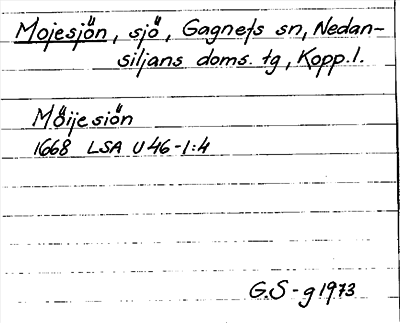 Mojesjön, sjö, Gagnefs sn, Nedan-
siljans doms. tg, Kopp. l.
Möijesiön
1668 LSA U46-1:4
G.S-g 1973